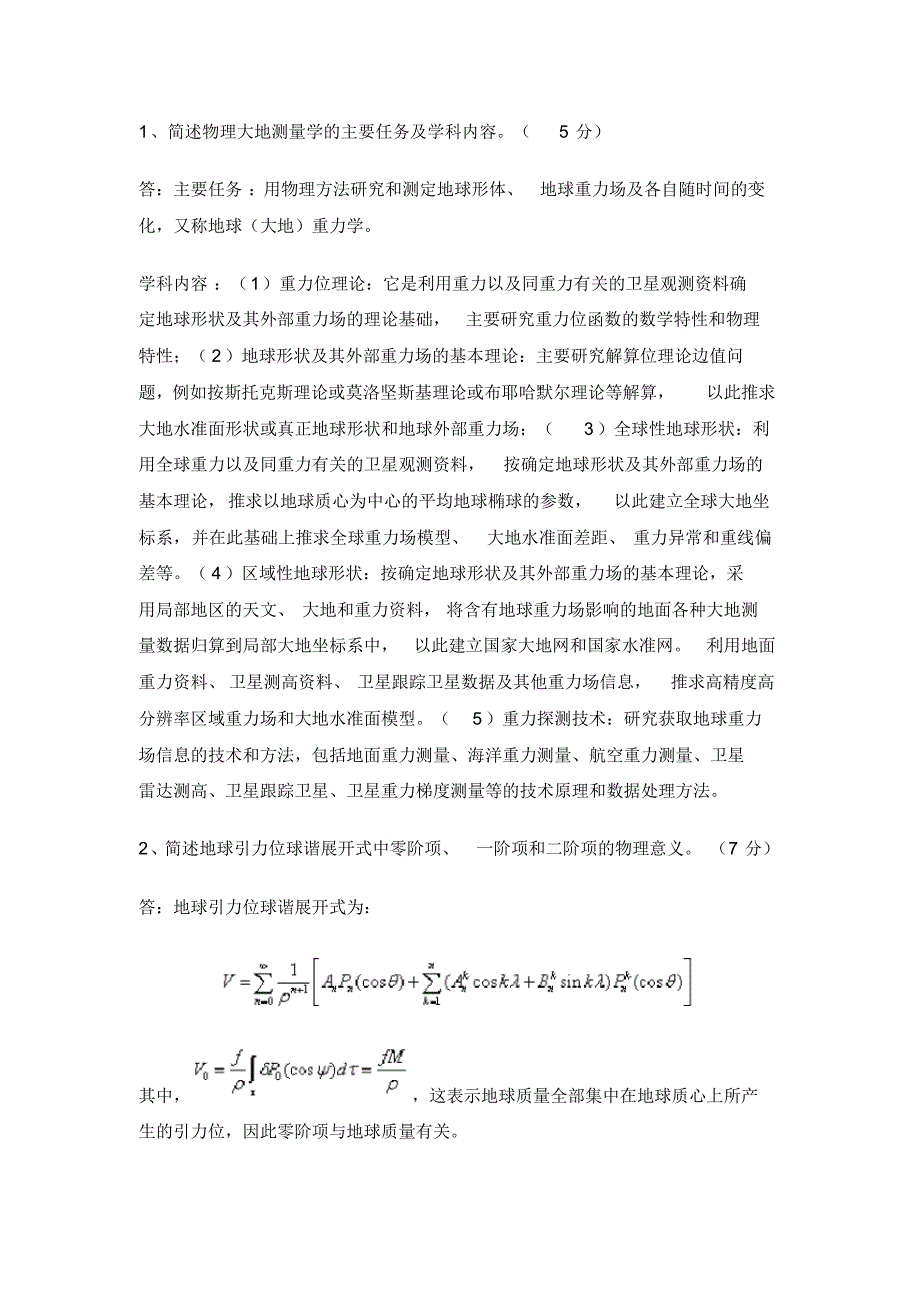 1、简述物理大地测量学的主要任务及学科内容。（ 5 分）
答：主要任务 ：用物理方法研究和测定地球形体、 地球重力场及各自随时间的变
化，又称地球（大地）重力学。
学科内容 ：（ 1 ）重力位理论：它是利用重力以及同重力有关的卫星观测资料确
定地球形状及其外部重力场的理论基础， 主要研究重力位函数的数学特性和物理
特性；（ 2 ）地球形状及其外部重力场的基本理论：主要研究解算位理论边值问
题，例如按斯托克斯理论或莫洛坚斯基理论或布耶哈默尔理论等解算， 以此推求
大地水准面形状或真正地球形状和地球外部重力场；（ 3 ）全球性地球形状：利
用全球重力以及同重力有关的卫星观测资料， 按确定地球形状及其外部重力场的
基本理论， 推求以地球质心为中心的平均地球椭球的参数， 以此建立全球大地坐
标系，并在此基础上推求全球重力场模型、 大地水准面差距、 重力异常和垂线偏
差等。（ 4 ）区域性地球形状：按确定地球形状及其外部重力场的基本理论，采
用局部地区的天文、 大地和重力资料， 将含有地球重力场影响的地面各种大地测
量数据归算到局部大地坐标系中， 以此建立国家大地网和国家水准网。 利用地面
重力资料、 卫星测高资料、 卫星跟踪卫星数据及其他重力场信息， 推求高精度高
分辨率区域重力场和大地水准面模型。（ 5 ）重力探测技术：研究获取地球重力
场信息的技术和方法，包括地面重力测量、海洋重力测量、航空重力测量、卫星
雷达测高、卫星跟踪卫星、卫星重力梯度测量等的技术原理和数据处理方法。
2、简述地球引力位球谐展开式中零阶项、 一阶项和二阶项的物理意义。 （7 分）
答：地球引力位球谐展开式为：
V = ∑_{n=0}^{∞} 1/ρ^{n+1} [A_n P_n (cos θ) + ∑_{k=1}^{n} (A_n^k cos kλ + B_n^k sin kλ) P_n^k (cos θ)]
其中， V_0 = f/ρ ∫_τ δP_0 (cos ψ) dτ = fM/ρ ，这表示地球质量全部集中在地球质心上所产
生的引力位，因此零阶项与地球质量有关。